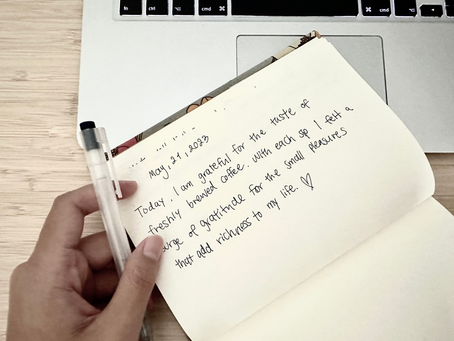 cmd
cmd
May, 21, 2023
Today, I am grateful for the taste of
freshly brewed coffee. With each sip I felt a
surge of gratitude for the small pleasures
that add richness to my life. ♡